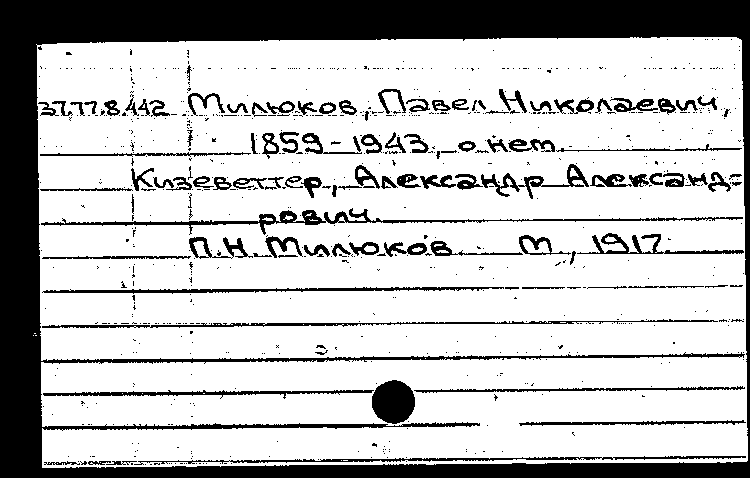 37.77.8.442 Милюков, Павел Николаевич,
1859-1943, о нем.
Кизеветтер, Александр Александ=
рович.
П.Н. Милюков. М., 1917.